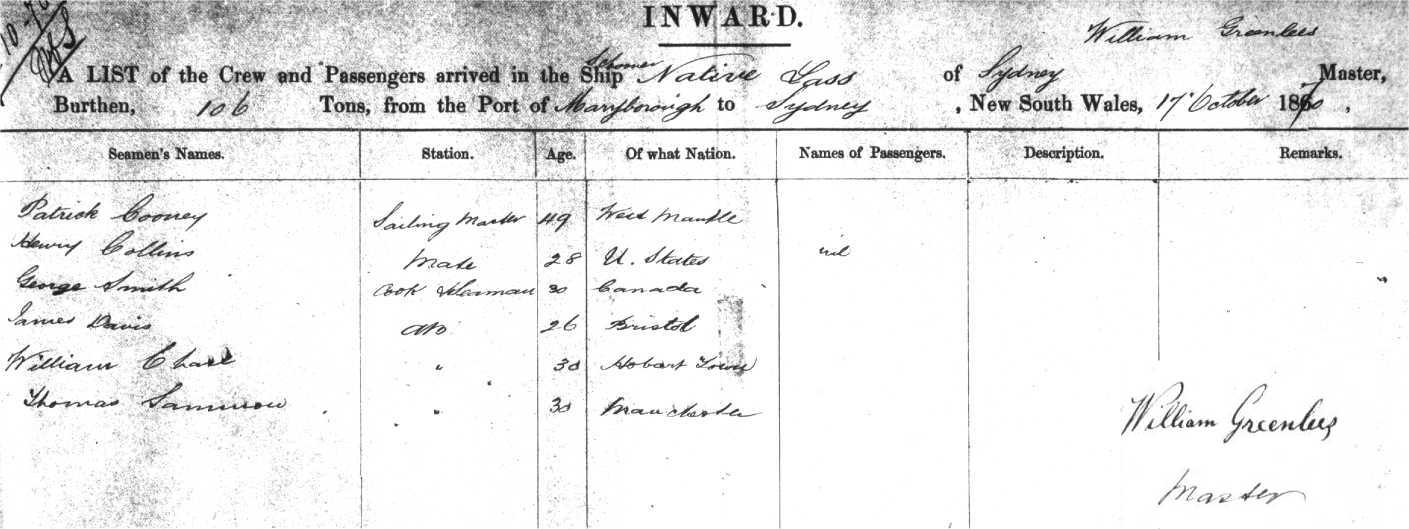 INWARD.
William Greenlees
A LIST of the Crew and Passengers arrived in the Ship Schooner Native Lass of Sydney Master,
Burthen, 106 Tons, from the Port of Maryborough to Sydney, New South Wales, 17 October 1870,
Seamen's Names. Station. Age. Of what Nation. Names of Passengers. Description. Remarks.
Patrick Cooney Sailing Master 49
Henry Collins Mate 28 U. States nil
George Smith Cook & Seaman 30 Canada
James Davis AB 26 Bristol
William Chase " 30 Hobart Town
Thomas " 30 Manchester
William Greenlees
Master